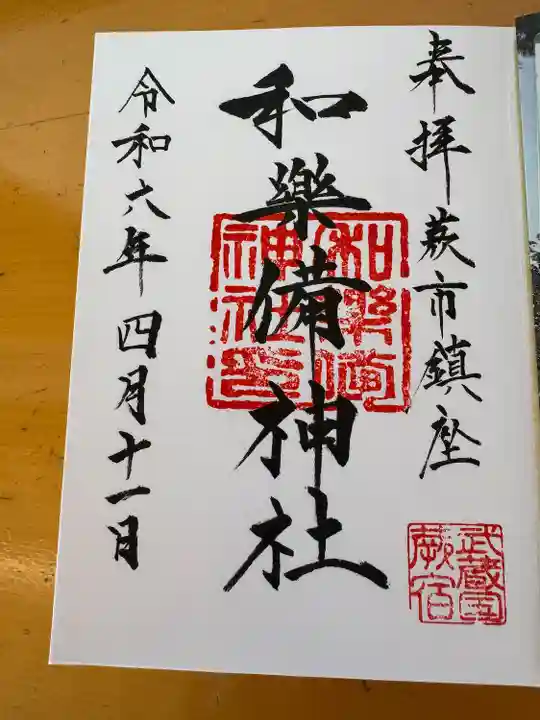 奉拝 蕨市鎮座
武蔵国
蕨宿
和樂備神社
和樂備
神社印
令和六年四月十一日